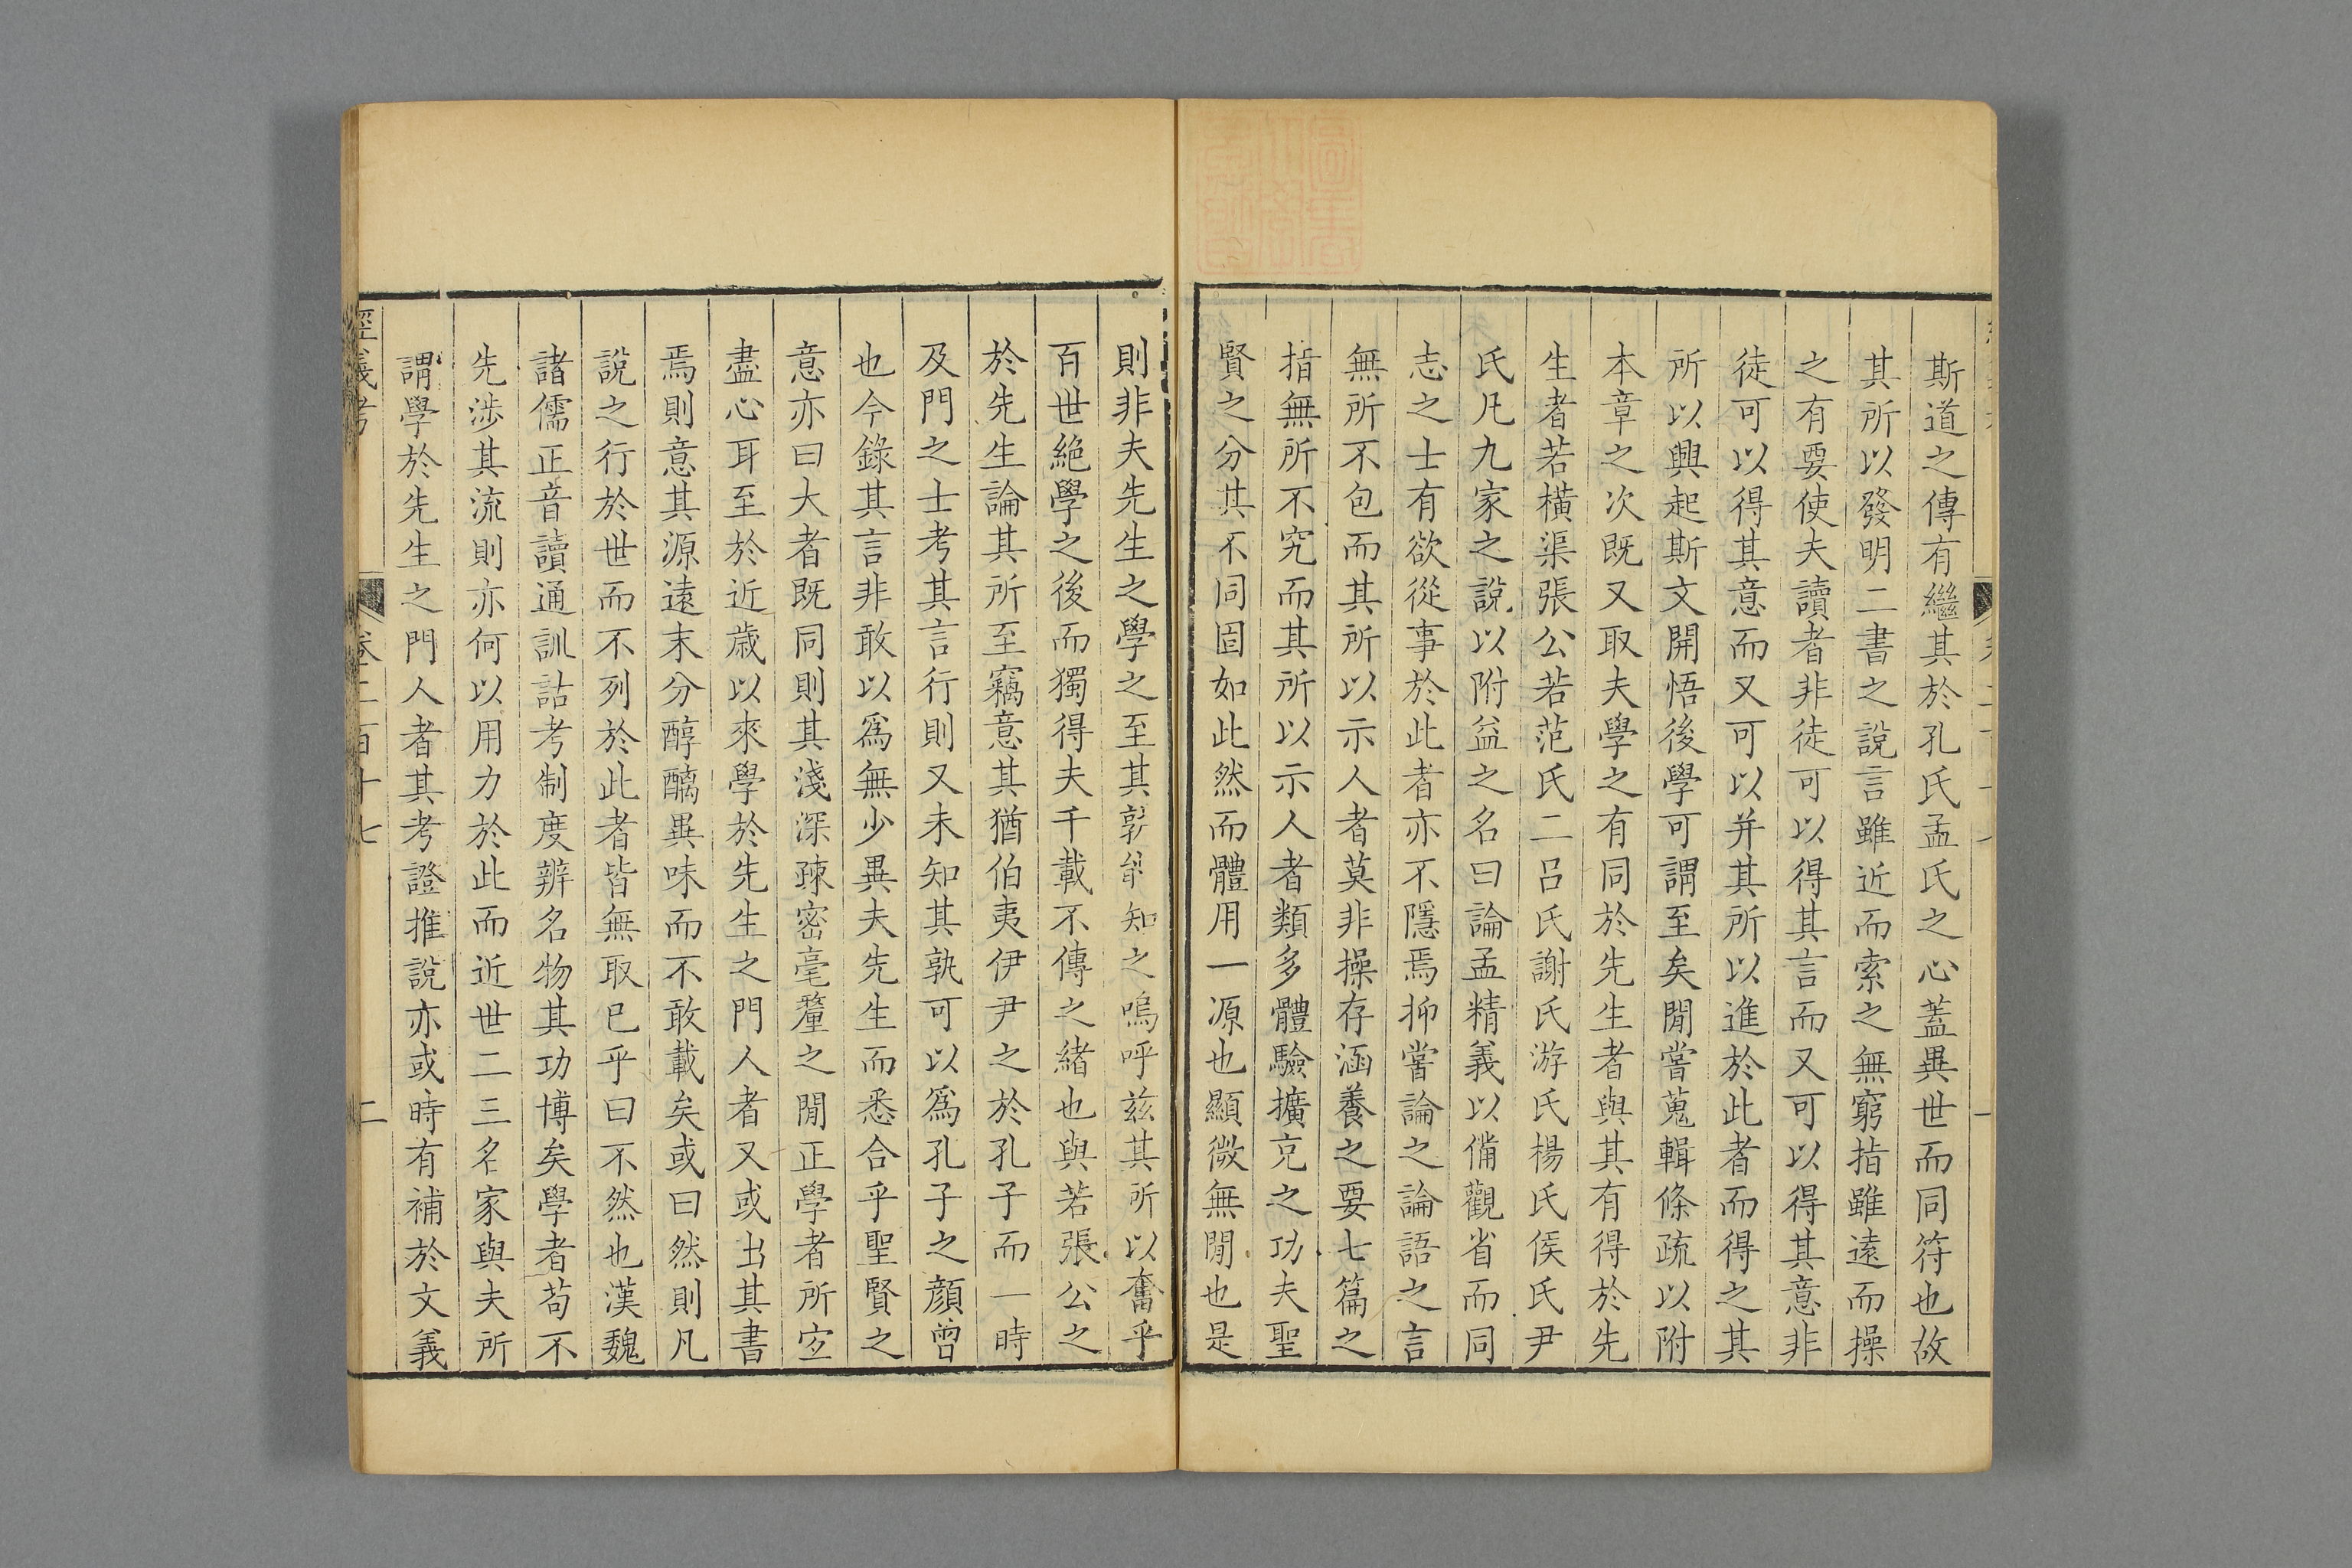 斯道之傳有繼其於孔氏孟氏之心蓋異世而同符也故
其所以發明二書之說言雖近而索之無窮指雖遠而操
之有要使夫讀者非徒可以得其言而又可以得其意非
徒可以得其意而又可以并其所以進於此者而得之其
所以興起斯文開悟後學可謂至矣閒嘗蒐輯條疏以附
本章之次既又取夫學之有同於先生者與其有得於先
生者若橫渠張公若范氏二呂氏謝氏游氏楊氏侯氏尹
氏凡九家之說以附益之名曰論孟精義以備觀省而同
志之士有欲從事於此者亦不隱焉抑嘗論之論語之言
無所不包而其所以示人者莫非操存涵養之要七篇之
指無所不究而其所以示人者類多體驗擴充之功夫聖
賢之分其不同固如此然而體用一源也顯微無閒也是
則非夫先生之學之至其孰能知之嗚呼茲其所以奮乎
百世絕學之後而獨得夫千載不傳之緒也與若張公之
於先生論其所至竊意其猶伯夷伊尹之於孔子而一時
及門之士考其言行則又未知其孰可以爲孔子之顏曾
也今錄其言非敢以爲無少異夫先生而悉合乎聖賢之
意亦曰大者既同則其淺深疎密毫釐之閒正學者所宜
盡心耳至於近歲以來學於先生之門人者又或出其書
焉則意其源遠末分醇醨異味而不敢載矣或曰然則凡
說之行於世而不列於此者皆無取已乎曰不然也漢魏
諸儒正音讀通訓詁考制度辨名物其功博矣學者苟不
先涉其流則亦何以用力於此而近世二三名家與夫所
謂學於先生之門人者其考證推說亦或時有補於文義
經義考
卷二百十七
二